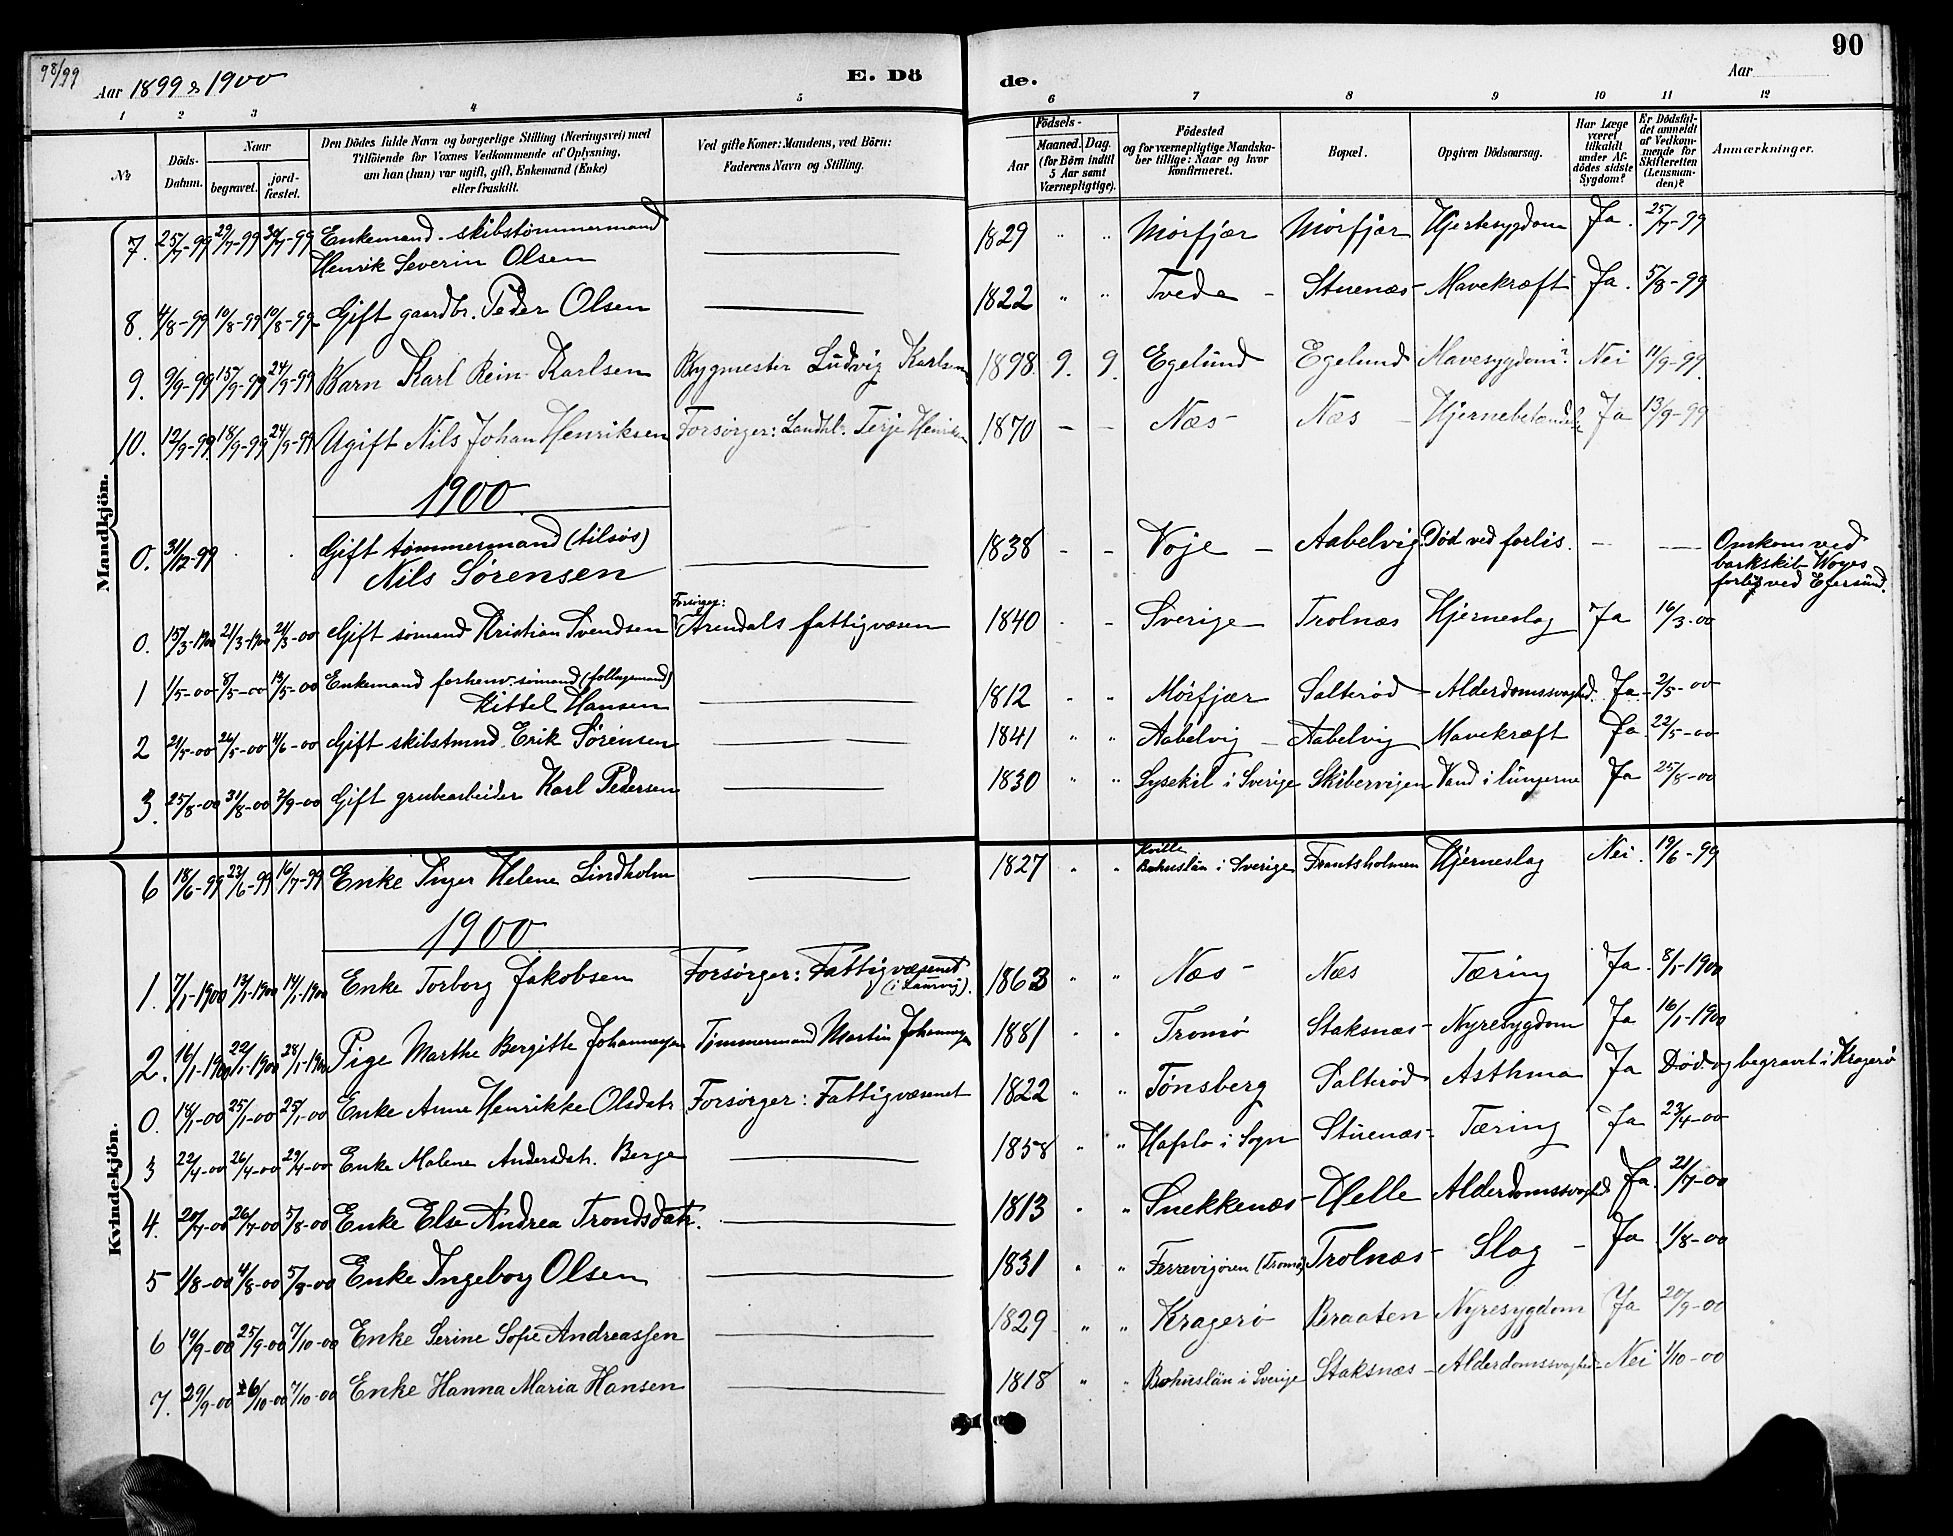 98/99
Aar 1899 & 1900
E. Dö
de.
Aar
90
1 2 3 4 5 6 7 8 9 10 11 12
No
Döds-Datum.
Naar
begravet.
jord-fæstet.
Den Dödes fulde Navn og borgerlige Stilling (Næringsvei) med
Tilföiende for Voxnes Vedkommende af Oplysning,
om han (hun) var ugift, gift, Enkemand (Enke)
eller fraskilt.
Ved gifte Koner: Mandens, ved Börn:
Faderens Navn og Stilling.
Födsels-
Aar
Maaned. Dag.
(for Börn indtil
5 Aar samt
Værnepligtige).
Födested
og for værnepligtige Mandska-
ber tillige: Naar og hvor
konfirmeret.
Bopæl.
Opgiven Dödsaarsag.
Har Læge
været
tilkaldt
under Af-
dödes sidste
Sygdom?
Er Dödsfal-
det anmeldt
af Vedkom-
mende for
Skifteretten
(Lensman-
den)?
Anmærkninger.
Mandkjön.
7. 25/7-99 29/7-99 30/7-99 Enkemand skibstømmermand
Henrik Severin Olsen — 1829 " " Mørfjær Mørfjær Hjertesygdom Ja. 25/7-99
8. 4/8-99 10/8-99 10/8-99 Gift gaardbr. Peder Olsen — 1822 " " Tvede - Stuenæs - Mavekræft Ja. 5/8-99
9. 9/9-99 15/9-99 24/9-99 Barn Karl Rein Karlsen Bygmester Ludvig Karlsen 1898. 9. 9. Egelund Egelund Mavesygdom? Nei 11/9-99.
10. 12/9-99. 18/9-99 24/9-99 Ugift Nils Johan Henriksen Forsørger: Landhl. Terje Henriksen 1870 - - Næs - Næs - Hjernebetændelse Ja 13/9-99
1900
0. 31/12-99 Gift tømmermand (tilsøs)
Nils Sørensen — 1838 - - Voje - Aabelvig. Død ved forlis. - — Omkom ved
barkskib Woyes
forlis ved Egersund.
Forsørger:
0. 15/3-1900 21/3-1900 21/3-00 Gift sømand Kristian Svendsen Arendals fattigvæsen 1840 - - Sverige Trolnæs Hjerneslag Ja 16/3-00
1 1/5-00 8/5-00 13/5-00 Enkemand forhenv. sømand (follagsmand)
Kittel Hansen — 1812 " " Mørfjær Salterød - Alderdomssvaghed. Ja 2/5-00
2 21/5-00 26/5-00 4/6-00 Gift skibstmnd Erik Sørensen — 1841 " " Aabelvig - Aabelvig Mavekræft Ja. 22/5-00
3. 25/8-00 31/8-00 2/9-00 Gift grubearbeider Karl Pedersen — 1830 " " Lysekil i Sverige Skibervigen Vand i lungerne Ja 25/8-00
Kvindekjön.
6 18/6-99 23/6-99 16/7-99 Enke Inger Helene Lindholm — 1827 " " Kville
Bohuslän i Sverige Frantsholmen Hjerneslag Nei. 19/6-99
1900
1. 7/1-1900 13/1-1900 14/1-1900 Enke Torborg Jakobsen Forsørger: Fattigvæsenet
(i Laurvig). 1863 " " Næs - Næs Tæring Ja. 8/1-1900
2. 16/1-1900 22/1-1900 28/1-1900 Pige Marthe Bergitte Johannesen Tømmermand Martin Johannesen 1881 " " Tromø Staksnæs - Nyresygdom Ja 16/1-1900
0. 18/1-00 25/1-00 25/1-00 Enke Anne Henrikke Olsdatr Forsørger: Fattigvæsenet 1822 " " Tønsberg Salterød Asthma Ja Død og begravet i Kragerø
3 22/4-00 26/4-00 29/4-00 Enke Malene Andersdatr. Berge — 1858 " " Hafslo i Sogn Stuenæs - Tæring Ja 23/4-00
4. 20/7-00 26/7-00 5/8-00 Enke Else Andrea Trondsdatr. — 1813 " " Snekkenæs - Helle Alderdomssvaghed. Ja. 21/7-00
5 1/8-00 4/8-00 5/8-00 Enke Ingeborg Olsen — 1831 " " (Tromø) Trolnæs - Slag - Ja 1/8-00
6 19/9-00 25/9-00 7/10-00 Enke Serine Sofie Andreassen — 1829 " " Kragerø Braaten Nyresygdom Ja 20/9-00
7. 29/9-00 6/10-00 7/10-00 Enke Hanna Maria Hansen — 1818 " " Bohuslän i Sverige Staksnæs - Alderdomssvaghed Nei 1/10-00